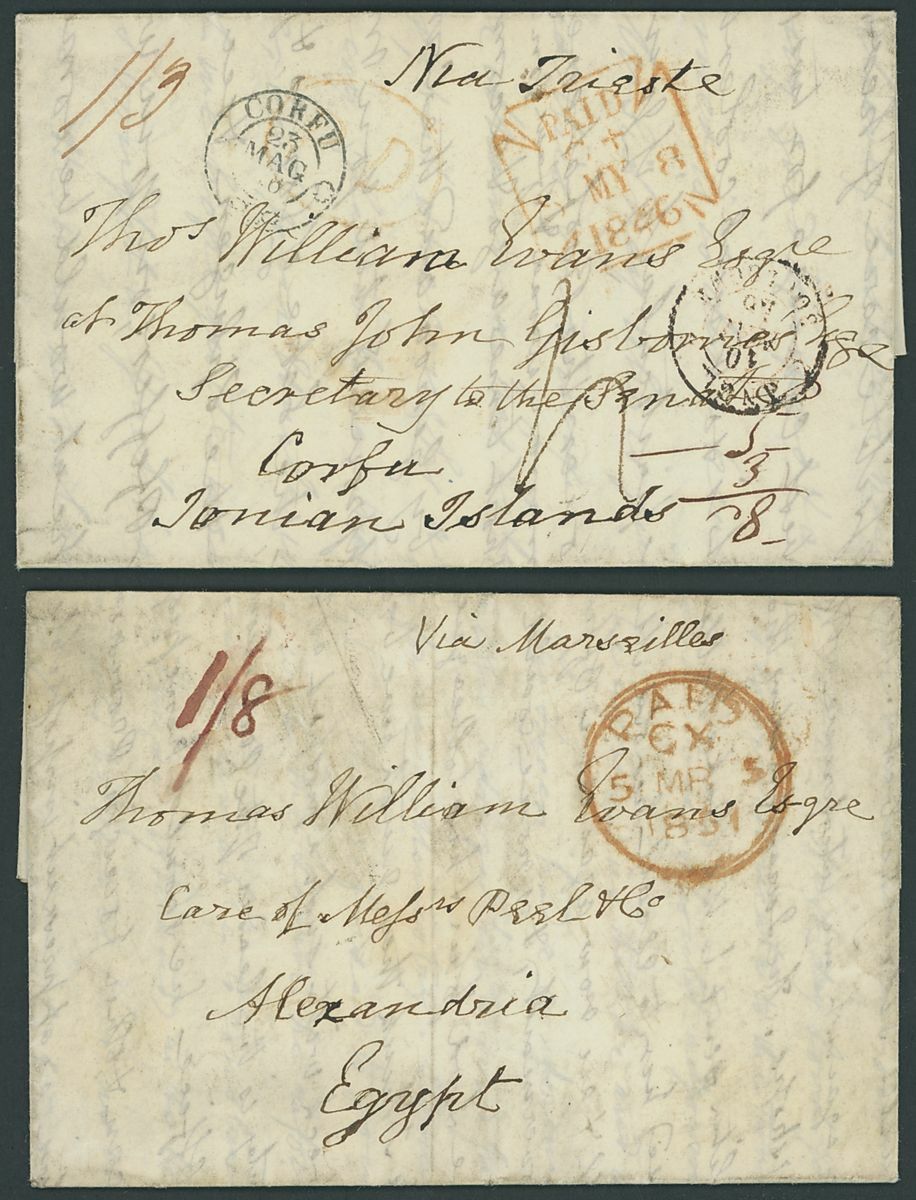 1/3
Via Trieste
CORFU
23
MAG
PD
PAID
MY 8
1846
Thos William Evans Esqre
at Thomas John Gisbornes Esqe
Secretary to the Senate
10
5
3
8
Corfu
Ionian Islands
Via Marseilles
1/8
PAID
CX
5 MR 5
1851
Thomas William Evans Esqre
Care of Messrs Peel & Co
Alexandria
Egypt